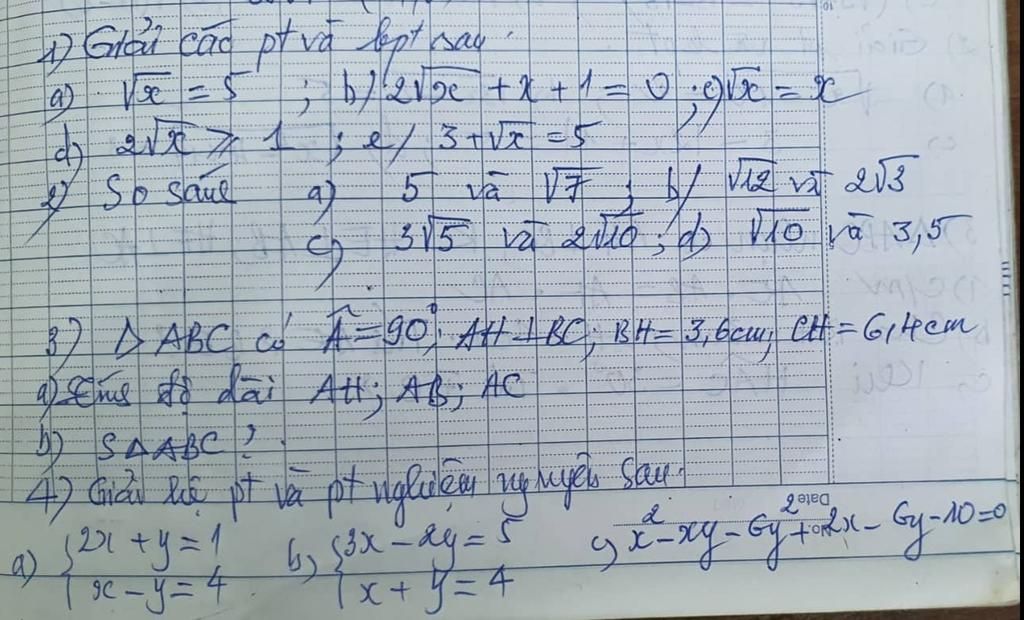 1) Giải các pt và bpt sau:
a) √x = 5 ; b) 2√x + x + 1 = 0 ; c) √x = x
d) 2√x ⩾ 1 ; e/ 3 + √x = 5
2) So sánh a) 5 và √7 ; b/ √12 và 2√3
c) 3√5 và 2√10 ; d) √10 và 3,5
3) Δ ABC có Â = 90°; AH ⊥ BC; BH = 3,6cm; CH = 6,4cm
a) Tính độ dài AH; AB; AC
b) SΔABC ?
4) Giải hệ pt và pt nghiệm nguyên sau:
a) {2x + y = 1 b) {3x − 2y = 5 c) x² − xy − 6y² + 2x − 6y − 10 = 0
{x − y = 4 {x + y = 4
Date